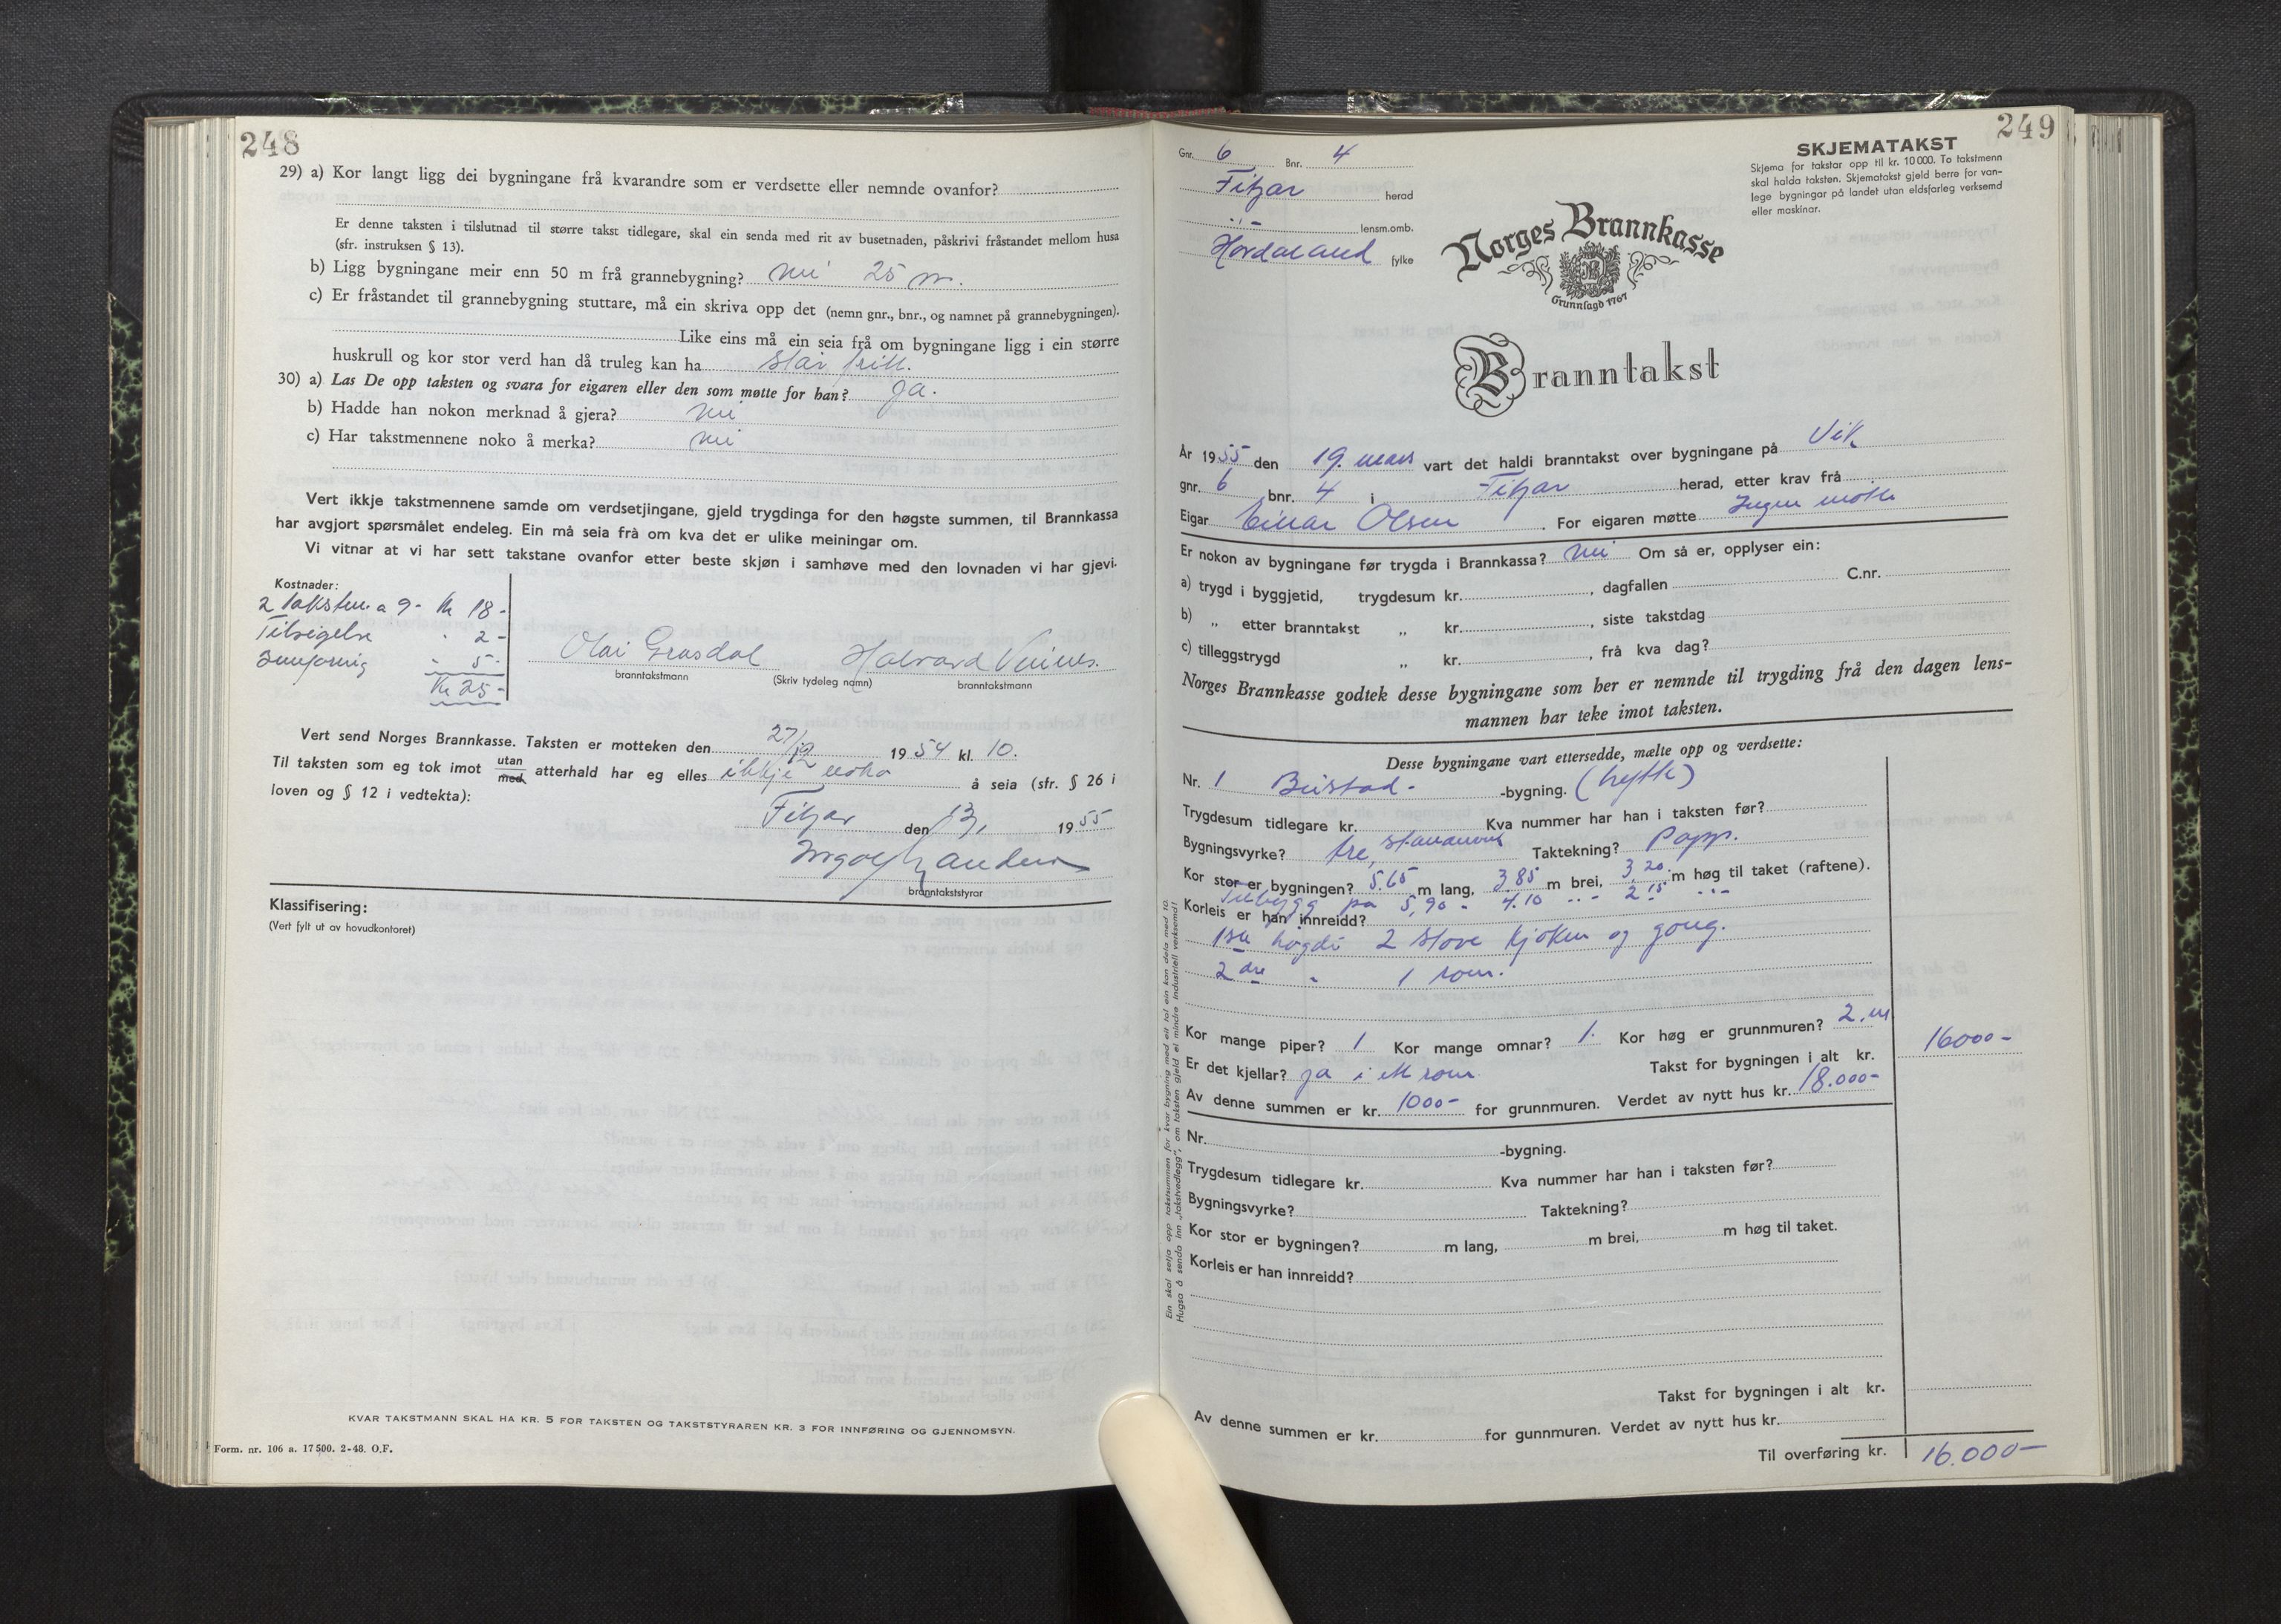 248
29) a) Kor langt ligg dei bygningane frå kvarandre som er verdsette eller nemnde ovanfor?
Er denne taksten i tilslutnad til større takst tidlegare, skal ein senda med rit av busetnaden, påskrivi fråstandet mellom husa
(sfr. instruksen § 13).
b) Ligg bygningane meir enn 50 m frå grannebygning? nei 25 m.
c) Er fråstandet til grannebygning stuttare, må ein skriva opp det (nemn gnr., bnr., og namnet på grannebygningen).
Like eins må ein seia frå om bygningane ligg i ein større
huskrull og kor stor verd han då truleg kan ha står fritt.
30) a) Las De opp taksten og svara for eigaren eller den som møtte for han? Ja.
b) Hadde han nokon merknad å gjera? nei
c) Har takstmennene noko å merka? nei
Vert ikkje takstmennene samde om verdsetjingane, gjeld trygdinga for den høgste summen, til Brannkassa
har avgjort spørsmålet endeleg. Ein må seia frå om kva det er ulike meiningar om.
Vi vitnar at vi har sett takstane ovanfor etter beste skjøn i samhøve med den lovnaden vi har gjevi.
Kostnader:
2 takstm. a 9- kr 18-
Tilseigelse " 2-
Innføring " 5-
Kr 25-
Olai Grasdal Halvard
branntakstmann (Skriv tydeleg namn) branntakstmann
Vert send Norges Brannkasse. Taksten er motteken den 27/12 1954 kl. 10.
Til taksten som eg tok imot utan med atterhald har eg elles ikkje noko å seia (sfr. § 26 i
loven og § 12 i vedtekta):
Fitjar den 1955
branntakststyrar
Klassifisering:
(Vert fylt ut av hovudkontoret)
KVAR TAKSTMANN SKAL HA KR. 5 FOR TAKSTEN OG TAKSTSTYRAREN KR. 3 FOR INNFØRING OG GJENNOMSYN.
Form. nr. 106 a. 17 500. 2-48. O.F.
249
Gnr. 6 Bnr. 4
Fitjar herad
" - lensm.omb.
Hordaland fylke
SKJEMATAKST
Skjema for takstar opp til kr. 10 000. To takstmenn
skal halda taksten. Skjematakst gjeld berre for van-
lege bygningar på landet utan eldsfarleg verksemd
eller maskinar.
Norges Brannkasse
Grunnlagd 1767
Branntakst
År 1955 den 19. mars vart det haldi branntakst over bygningane på Vik
gnr. 6 bnr. 4 i Fitjar herad, etter krav frå
Eigar Einar Olsen. For eigaren møtte Ingen møtte
Er nokon av bygningane før trygda i Brannkassa? nei Om så er, opplyser ein:
a) trygd i byggjetid, trygdesum kr. , dagfallen C.nr.
b) „ etter branntakst „ kr. , siste takstdag
c) tilleggstrygd „ kr. , frå kva dag?
Norges Brannkasse godtek desse bygningane som her er nemnde til trygding frå den dagen lens-
mannen har teke imot taksten.
Desse bygningane vart ettersedde, mælte opp og verdsette:
Nr. 1 Bustad- -bygning. (hytte)
Trygdesum tidlegare kr. Kva nummer har han i taksten før?
Bygningsvyrke? tre, Taktekning? Papp.
Kor stor er bygningen? 5.65 m lang, 3.85 m brei, 3.20 m høg til taket (raftene).
Tilbygg på 5,90 - 4.10 " - 2.15 " -
Korleis er han innreidd?
1ste høgdi 2 stove kjøken og gong.
2dre " 1 rom.
Kor mange piper? 1 Kor mange omnar? 1. Kor høg er grunnmuren? 2. m
Er det kjellar? ja i ett rom. Takst for bygningen i alt kr. 16000-
Av denne summen er kr. 1000- for grunnmuren. Verdet av nytt hus kr. 18.000-
Nr. -bygning.
Trygdesum tidlegare kr. Kva nummer har han i taksten før?
Bygningsvyrke? Taktekning?
Kor stor er bygningen? m lang, m brei, m høg til taket.
Korleis er han innreidd?
Takst for bygningen i alt kr.
Av denne summen er kr. for gunnmuren. Verdet av nytt hus kr.
Til overføring kr. 16.000-
Ein skal setja opp takstsummen for kvar bygning med eit tal ein kan dela med 10.
Hugsa å senda inn „takstvedlegg", om taksten gjeld ei mindre industriell verksemd!